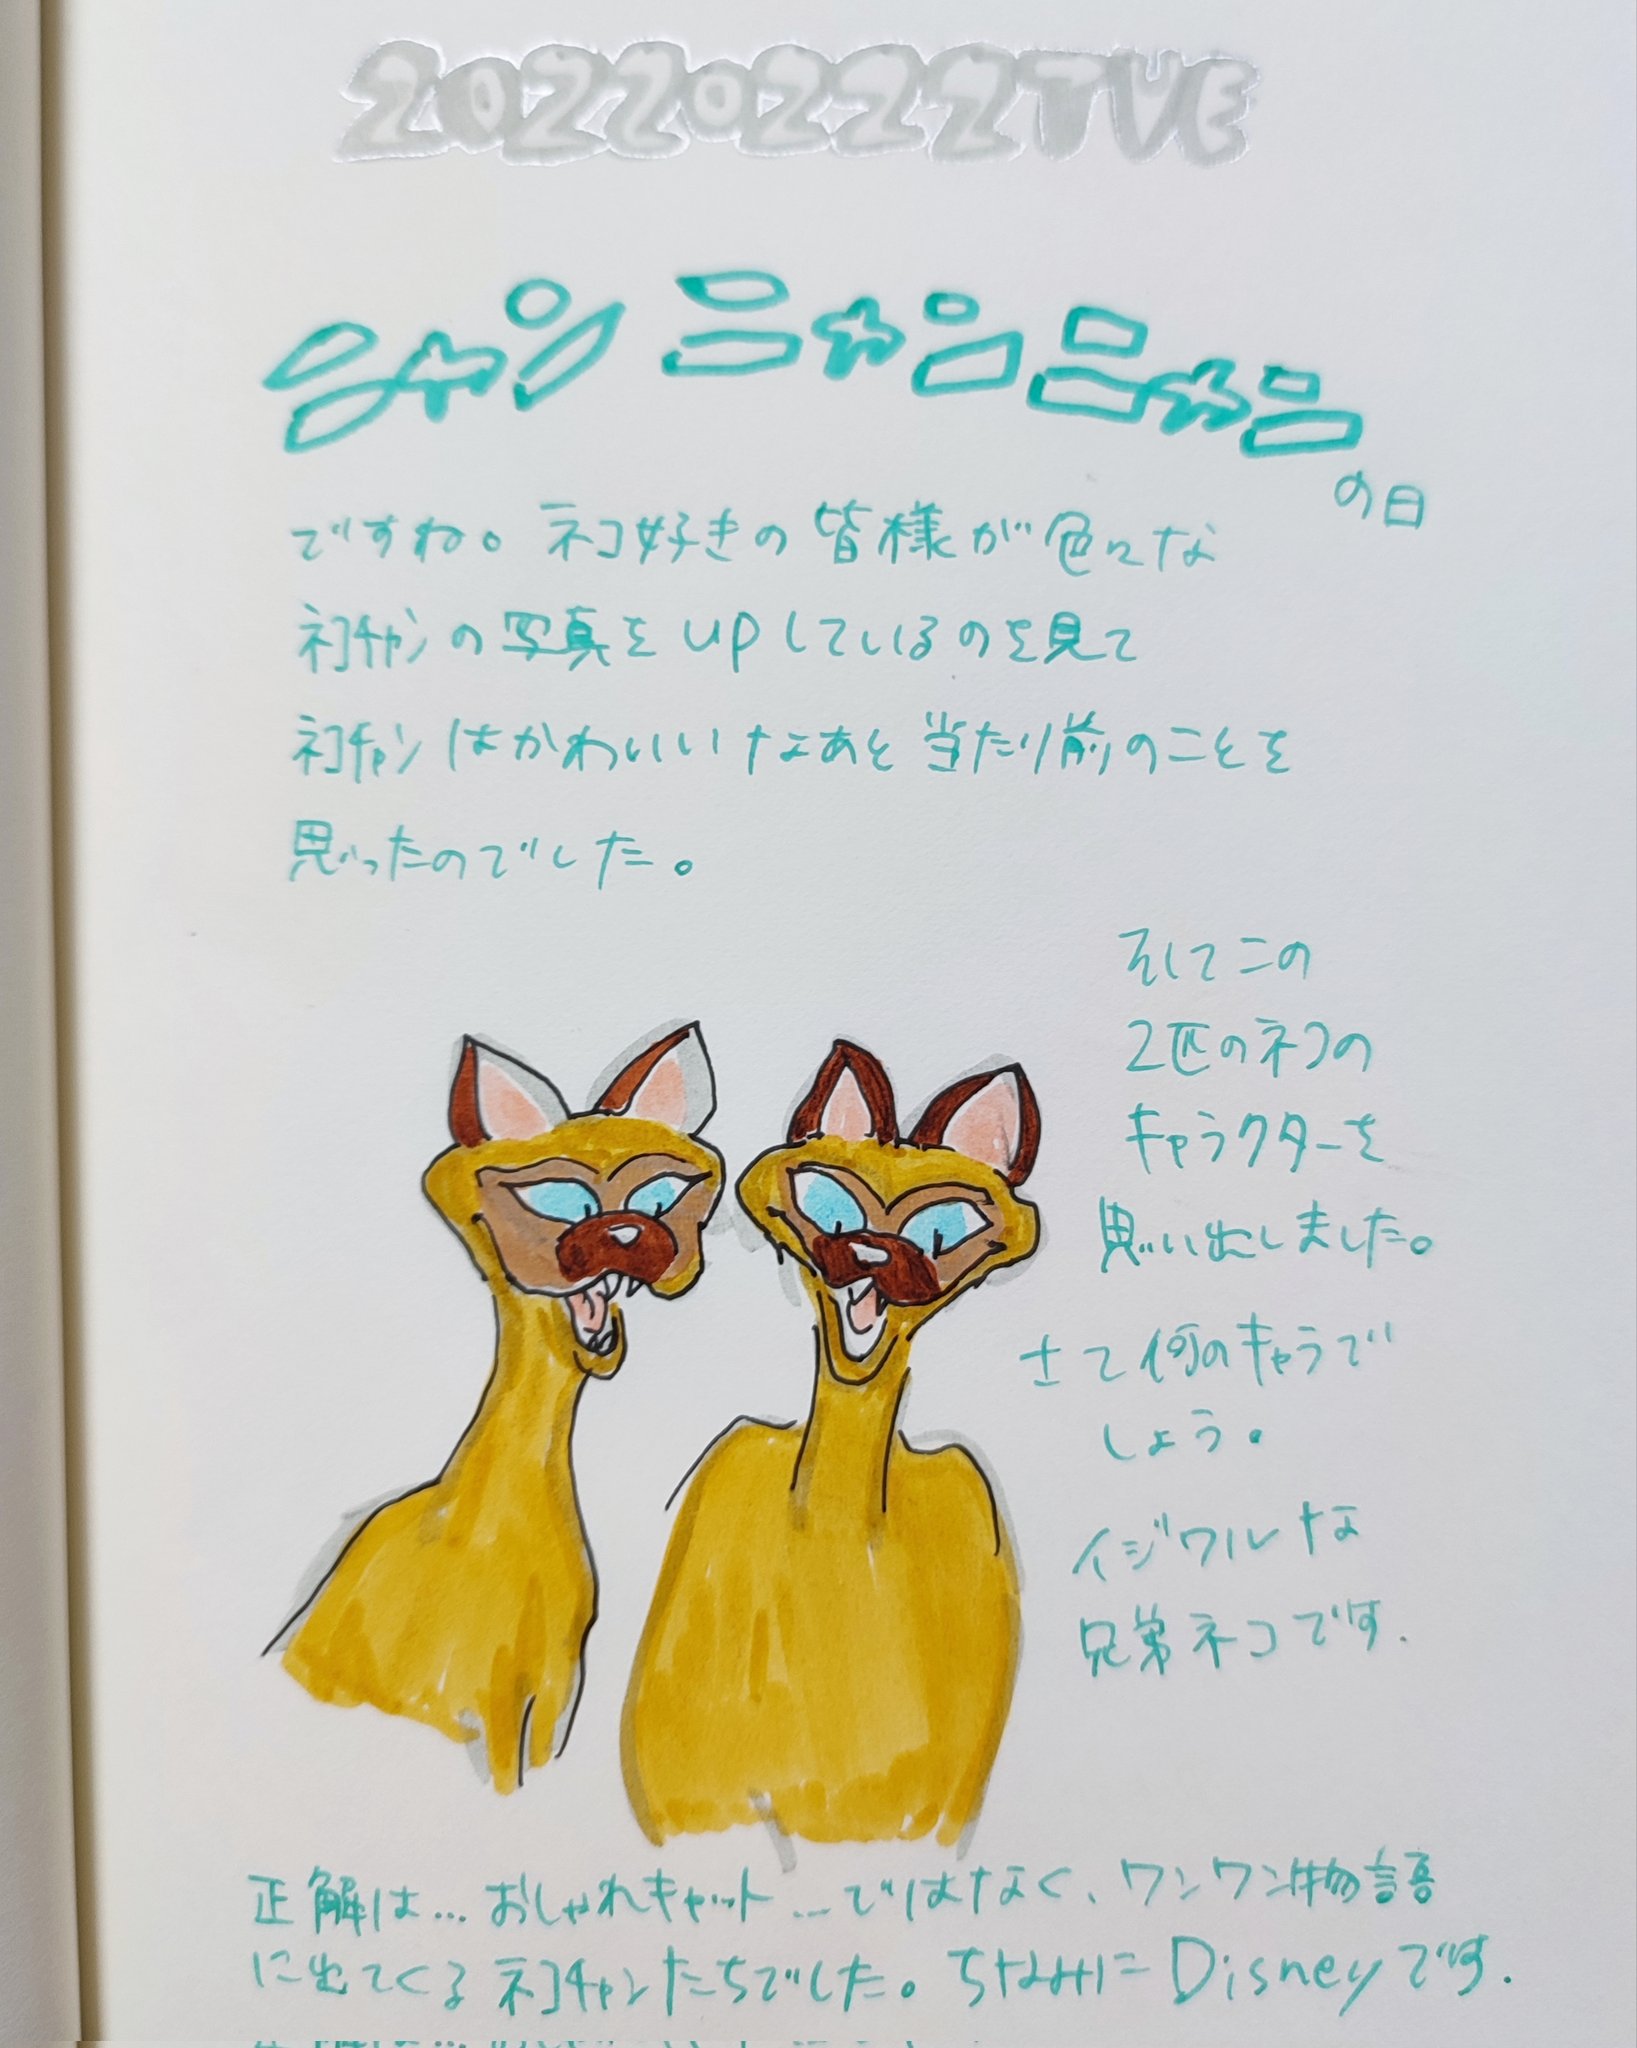 20220222TUE
ニャンニャンニャン
の日
ですね。ネコ好きの皆様が色々な
ネコチャンの写真をupしているのを見て
ネコチャンはかわいいなあと当たり前のことを
思ったのでした。
そしてこの
2匹のネコの
キャラクターを
思い出しました。
さて何のキャラで
しょう。
イジワルな
兄弟ネコです.
正解は…おしゃれキャット…ではなく、ワンワン物語
に出てくるネコチャンたちでした。ちなみにDisneyです.